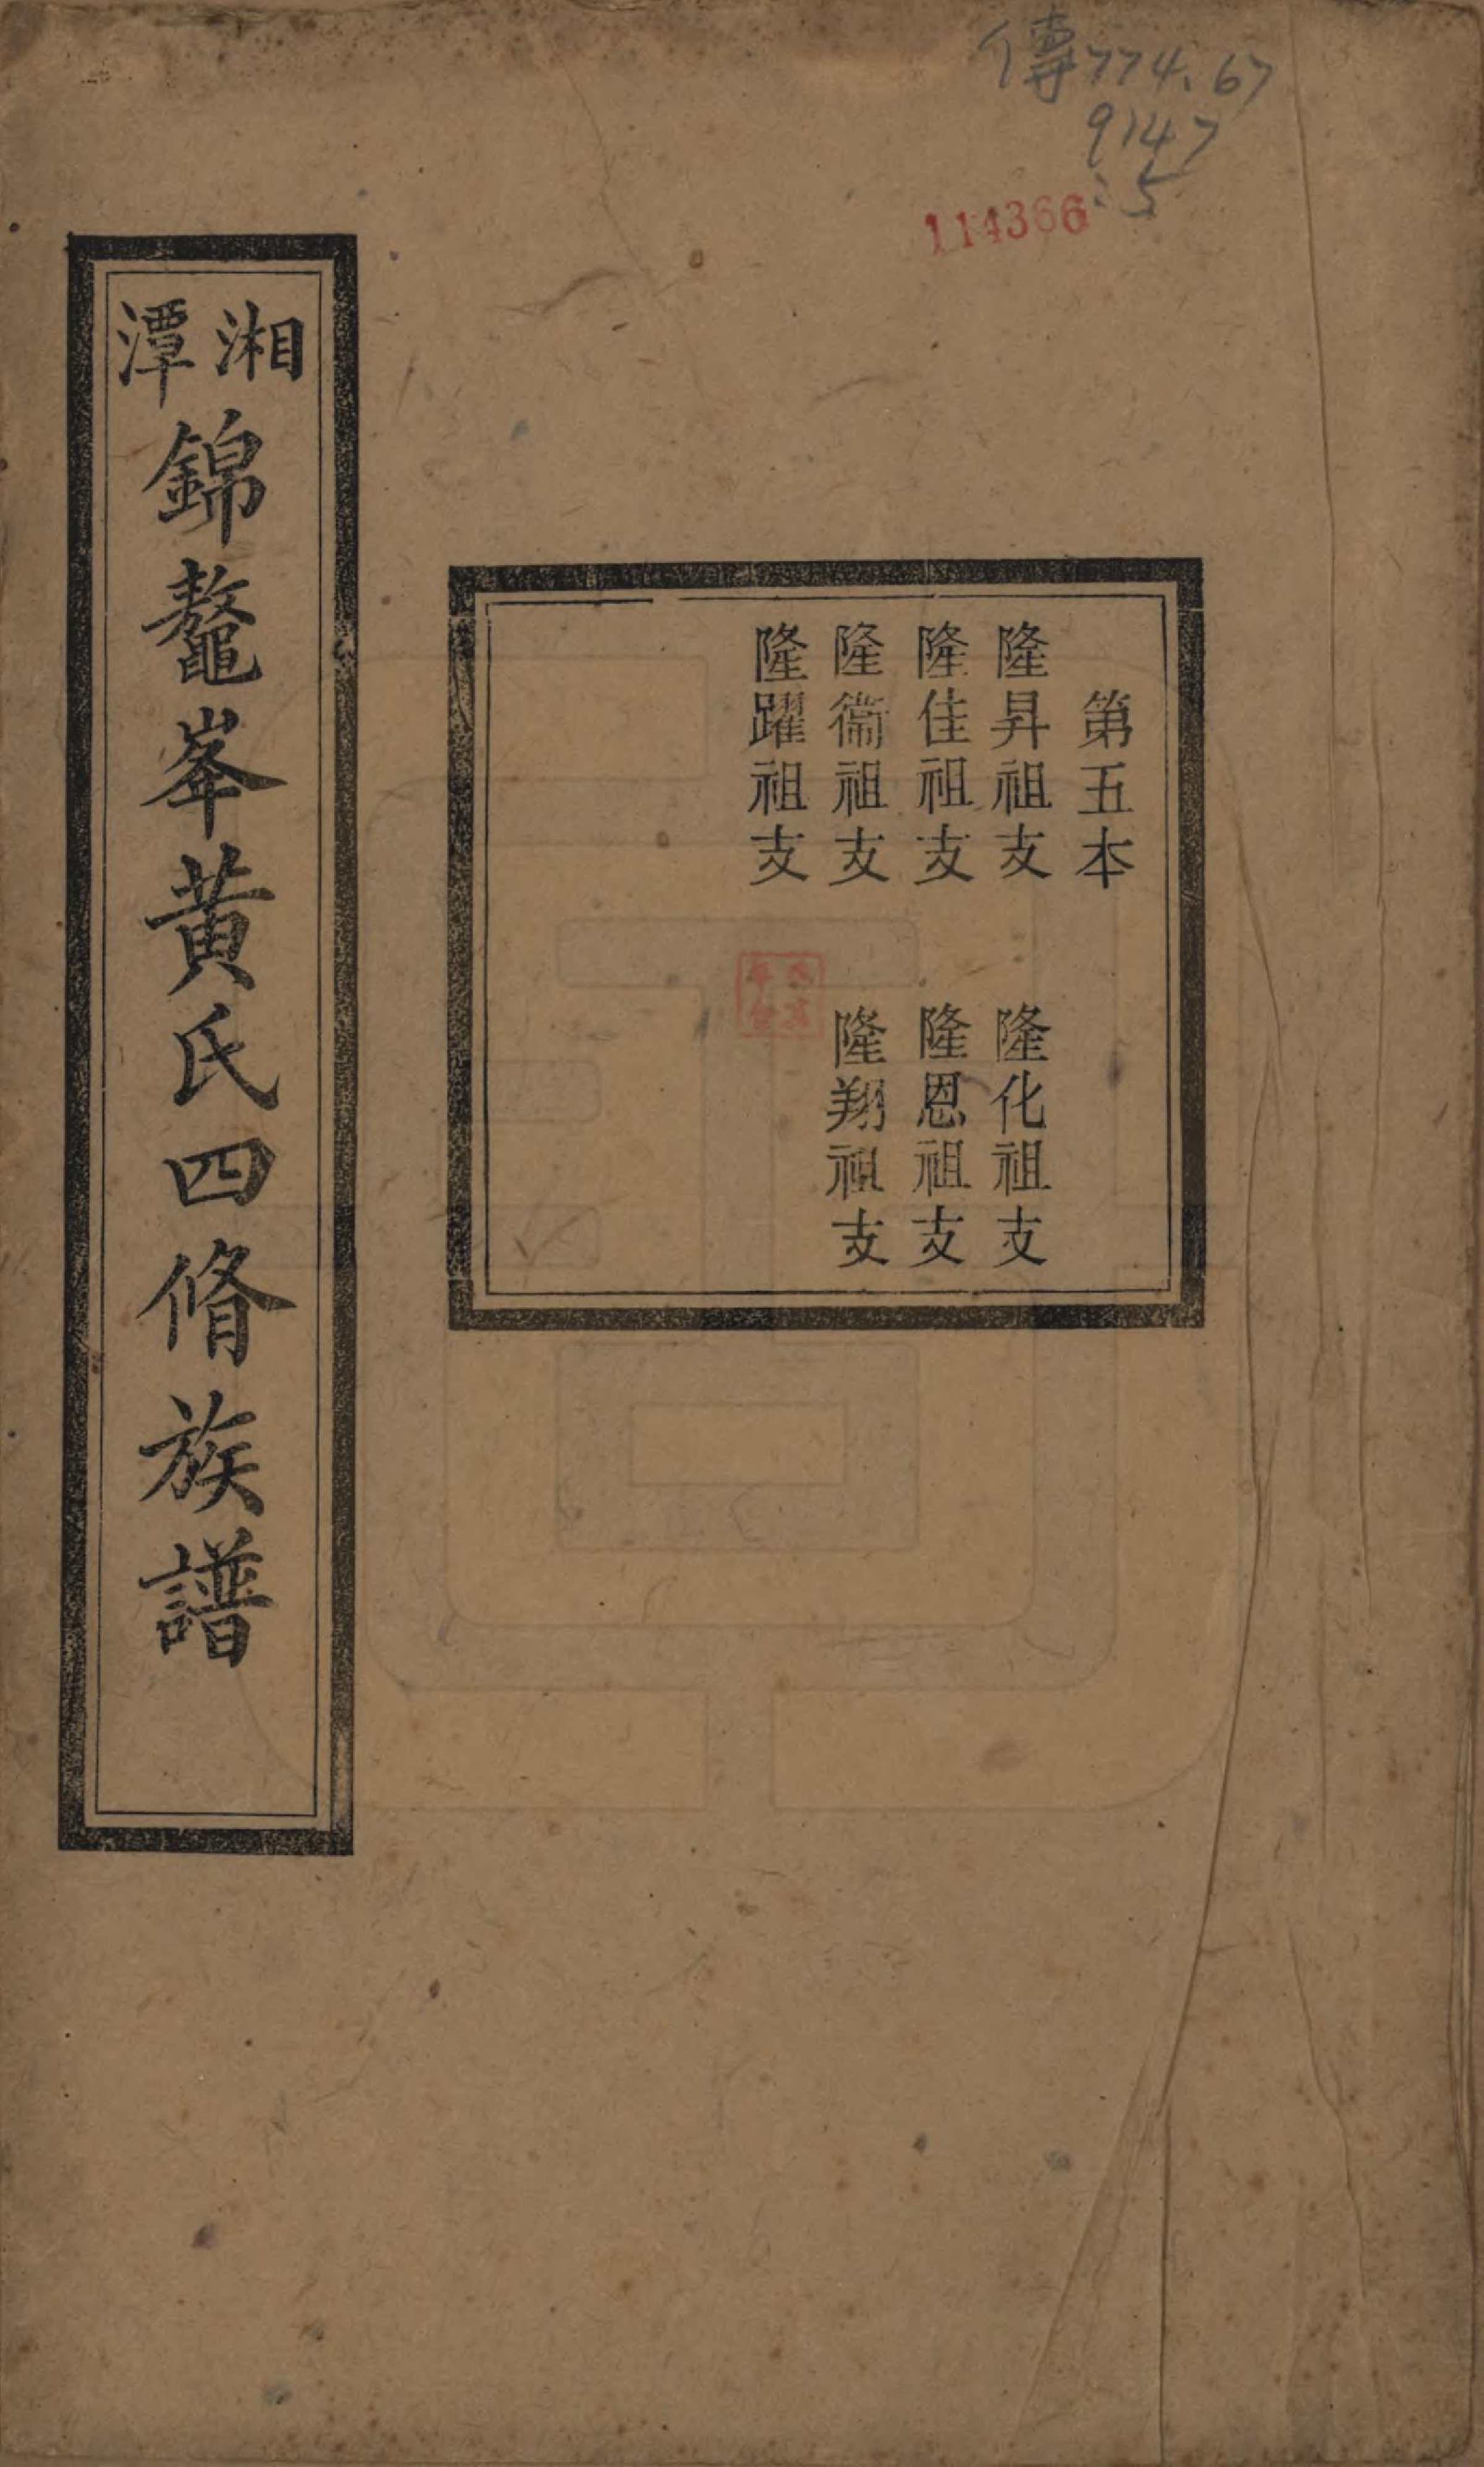 傳774.67
9147
:5
114366
湘潭
錦鼇峯黃氏四脩族譜
第五本
隆昇祖支 隆化祖支
隆佳祖支 隆恩祖支
隆衞祖支 隆翔祖支
隆躍祖支